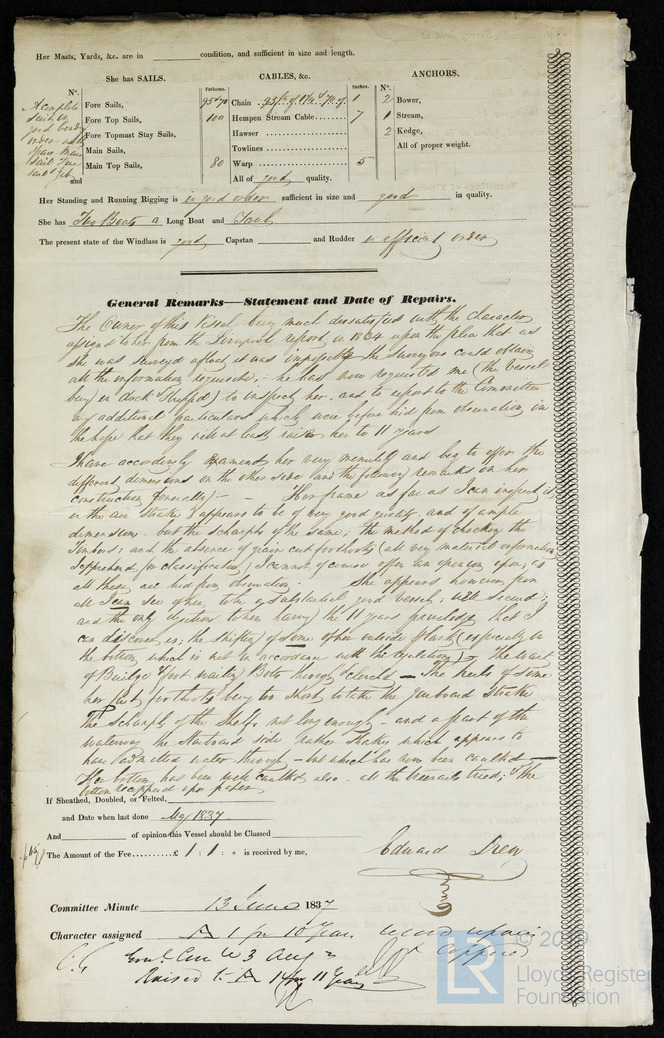 Her Masts, Yards, &c. are in condition, and sufficient in size and length.
She has SAILS. CABLES, &c. ANCHORS,
Nº. Fathoms. Inches. Nº.
A complete Fore Sails, 95 & 70 Chain 1 2 Bower,
suit in Fore Top Sails, 100 Hempen Stream Cable....... 7 1 Stream,
good Fore Topmast Stay Sails, Hawser 2 Kedge,
order with Main Sails, Towlines All of proper weight.
Main Top Sails, 80 Warp 5
and All of good quality,
Her Standing and Running Rigging is in good order sufficient in size and good in quality.
She has Two Boats a Long Boat and
The present state of the Windlass is good Capstan and Rudder in efficient order
General Remarks—Statement and Date of Repairs.
The Owner of this Vessel being much dissatisfied with the character
assigned to her from the Liverpool report, in 1834 upon the plea that as
she was surveyed afloat, it was impossible the Surveyors could obtain
all the information requisite; he has now requested me (the Vessel
being in dock & stripped) to inspect her, and to report to the Committee
any additional particulars which were before hid from observation in
the hope that they will at least raise her to 11 years
I have accordingly examined her very minutely and beg to offer the
different dimensions on the other side and the following remarks on her
construction generally:- - Her frame as far as I can inspect it
in the air strake appears to be of very good quality, and of ample
dimensions. but the scharphs of the same; the method of chocking the
Timbers; and the absence of grain cut foothooks (all very material information
I apprehend for classification) I cannot of course offer an opinion upon, as
all these are hid from observation. She appears however from
all I can see of her, to be a substantial good vessel; well secured;
and the only objection to her having the 11 years privilege that I
can discover is; the shifting of some of her outside plank (especially in
the bottom, which is not in accordance with the regulations) - The want
of Builge & foot waling Bolts through & clenched - The heels of some
her first foothooks being too short to take the Garboard Strake
The Scharphs of the Shelfs not long enough - and a part of the
waterway the Starboard side rather shaky which appears to
have admitted water through - but which has now been caulked -
Her bottom has been well caulked also - all the treenails tried; & the
bottom recoppered upon paper
If Sheathed, Doubled, or Felted,
and Date when last done May 1837
And of opinion this Vessel should be Classed
The Amount of the Fee..........£ 1 : 1 : 0 is received by me,
Edward Drew
Committee Minute 13 June 1837
Character assigned A 1 for 10 Years
Coppered
3 Aug
Raised to A 1 for 11 Years
LR © 20
Lloyd's Register
Foundation